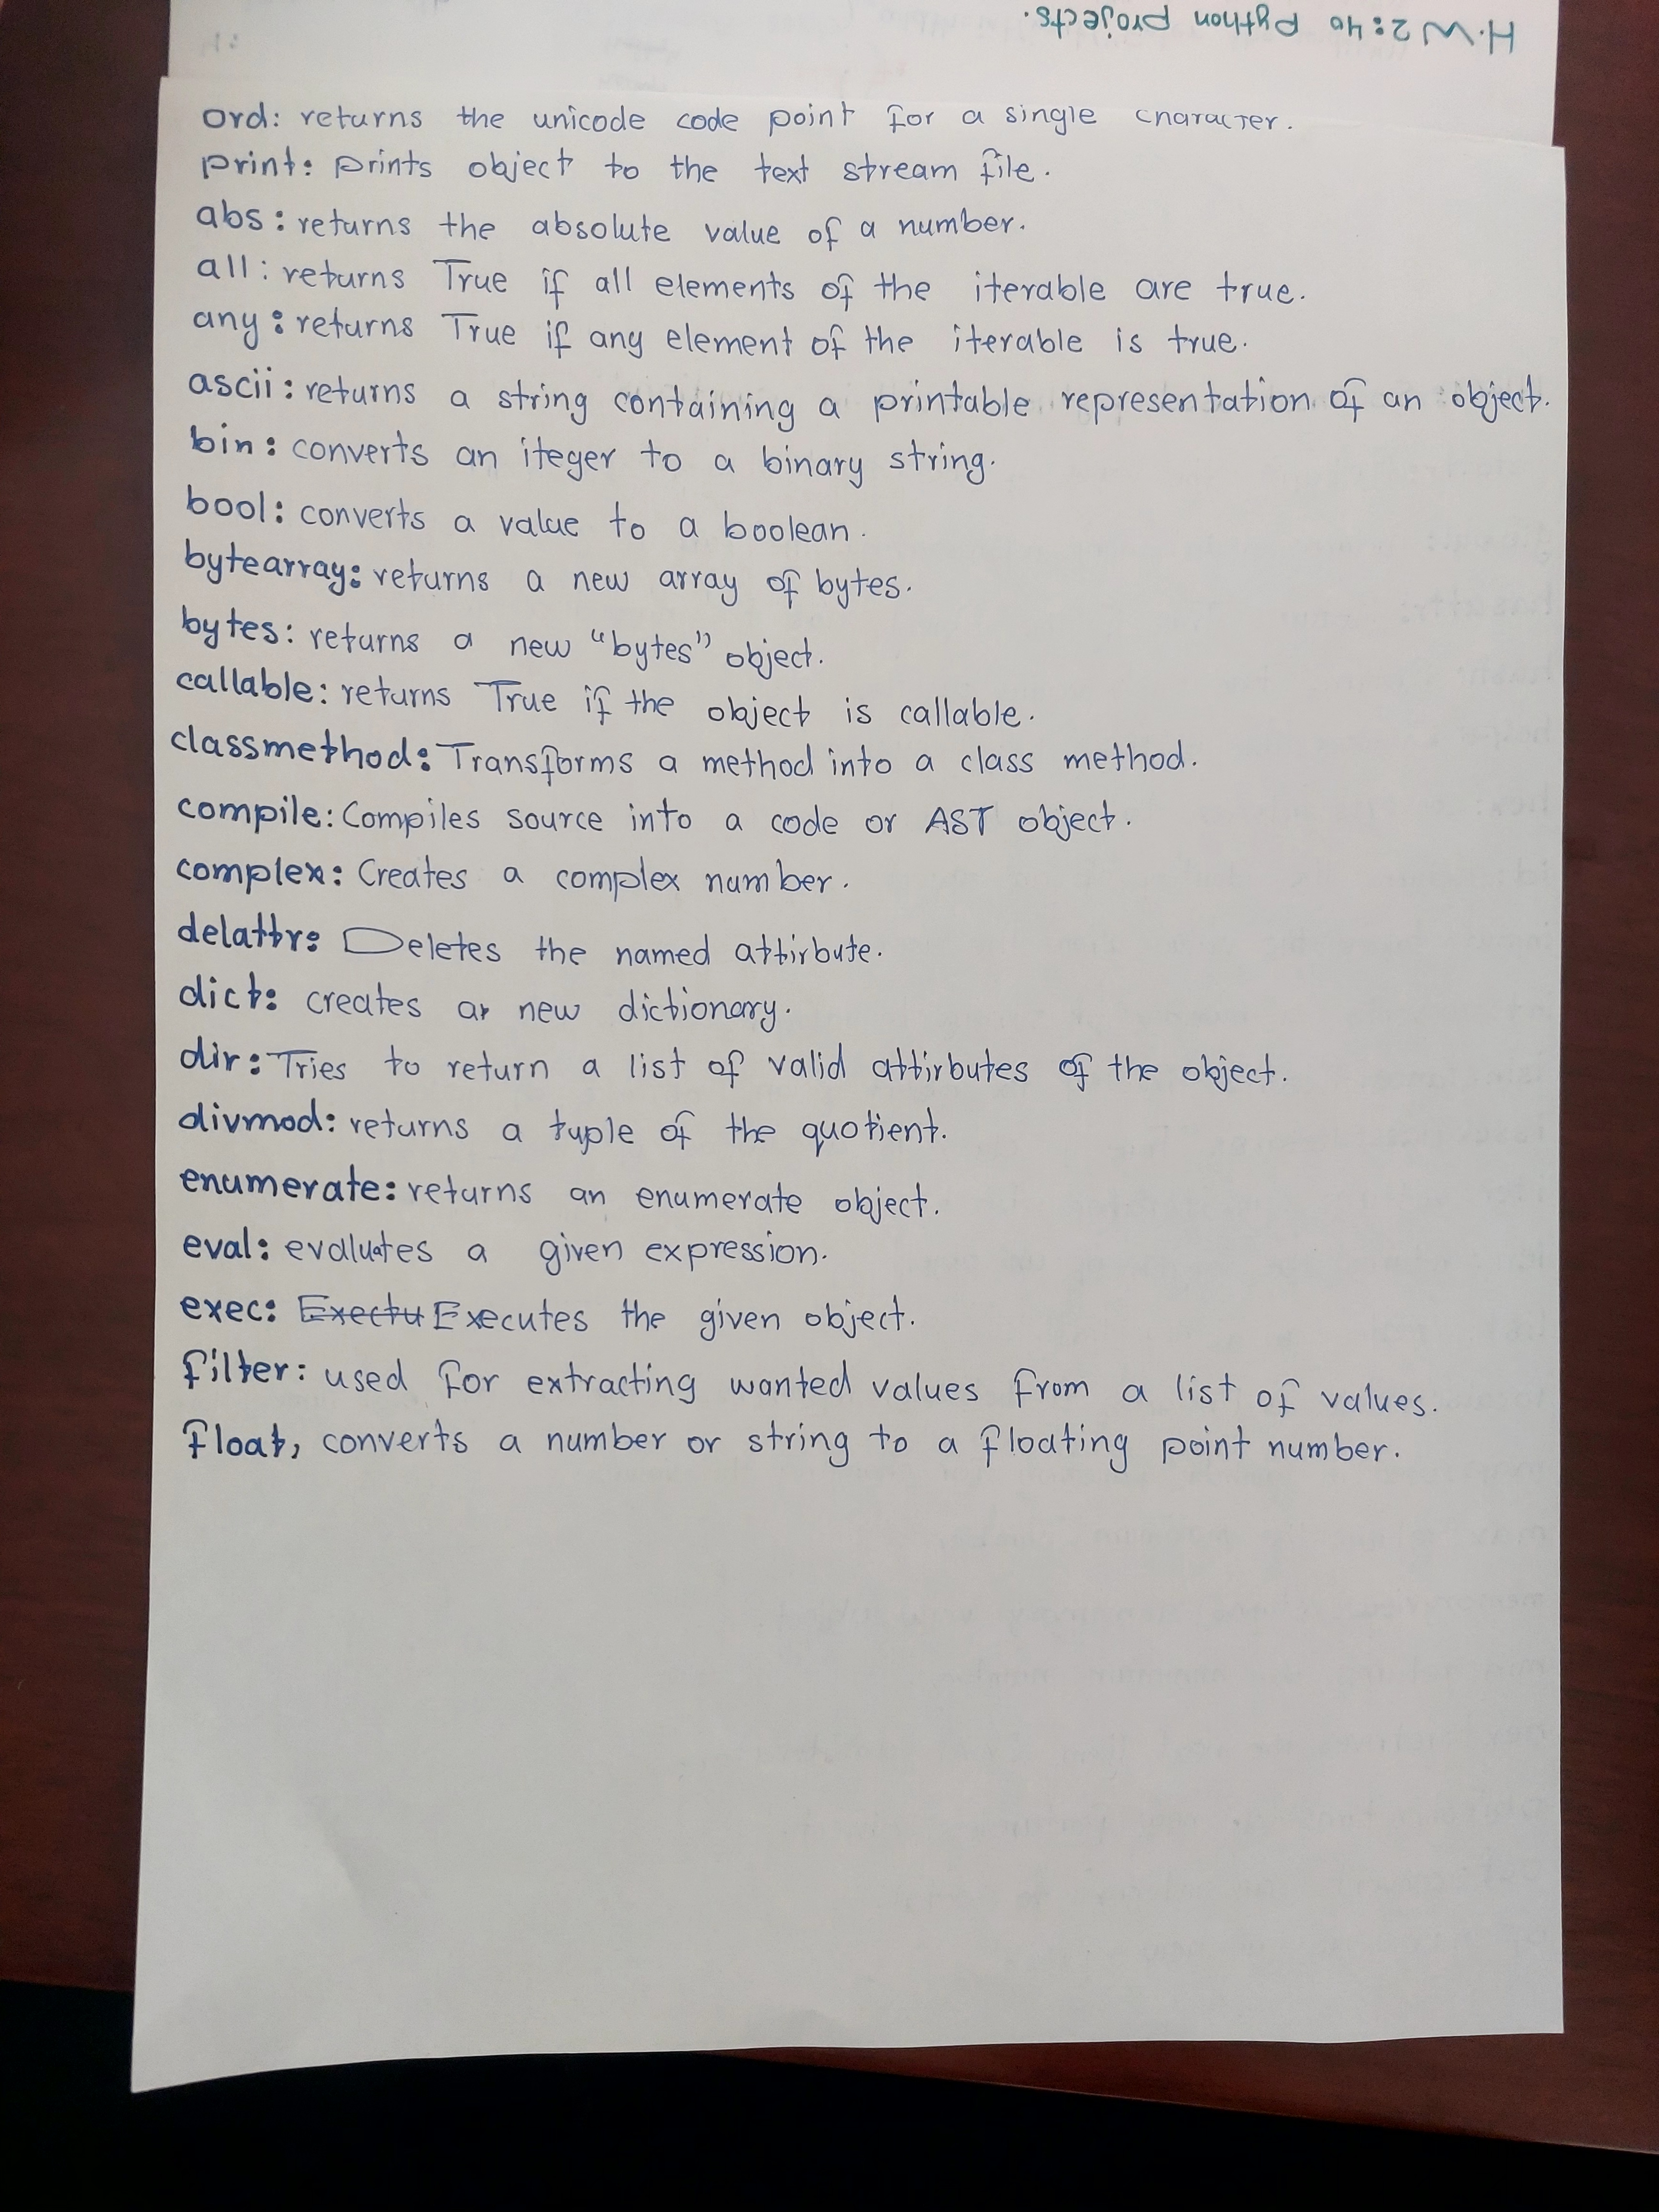 H.W 2: 40 Python projects.
ord: returns the unicode code point for a single character.
print: prints object to the text stream file.
abs: returns the absolute value of a number.
all: returns True if all elements of the iterable are true.
any: returns True if any element of the iterable is true.
ascii: returns a string containing a printable representation of an object.
bin: converts an iteger to a binary string.
bool: converts a value to a boolean.
bytearray: returns a new array of bytes.
bytes: returns a new "bytes" object.
callable: returns True if the object is callable.
classmethod: Transforms a method into a class method.
compile: Compiles source into a code or AST object.
complex: Creates a complex number.
delattr: Deletes the named attirbute.
dict: creates a new dictionary.
dir: Tries to return a list of valid attirbutes of the object.
divmod: returns a tuple of the quotient.
enumerate: returns an enumerate object.
eval: evaluates a given expression.
exec: Exectu Executes the given object.
filter: used for extracting wanted values from a list of values.
float, converts a number or string to a floating point number.